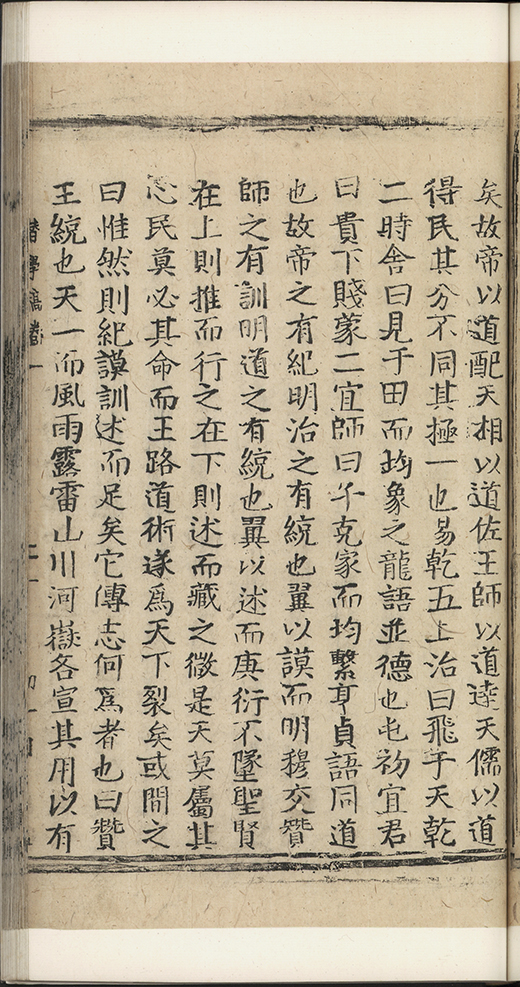 矣故帝以道配天相以道佐王師以道達天儒以道
得民其分不同其極一也易乾五上治曰飛乎天乾
二時舍曰見于田而均象之龍語並德也屯初宜君
曰貴下賤蒙二宜師曰子克家而均繫亨貞語同道
也故帝之有紀明治之有統也翼以謨而明穆交贊
師之有訓明道之有統也翼以述而庚衍不墜聖賢
在上則推而行之在下則述而藏之微是天莫屬其
心民莫必其命而王路道術遂爲天下裂矣或問之
曰惟然則紀謨訓述而足矣它傳志何爲者也曰贊
王統也天一而風雨露雷山川河嶽各宣其用以有
學稿卷一
二十